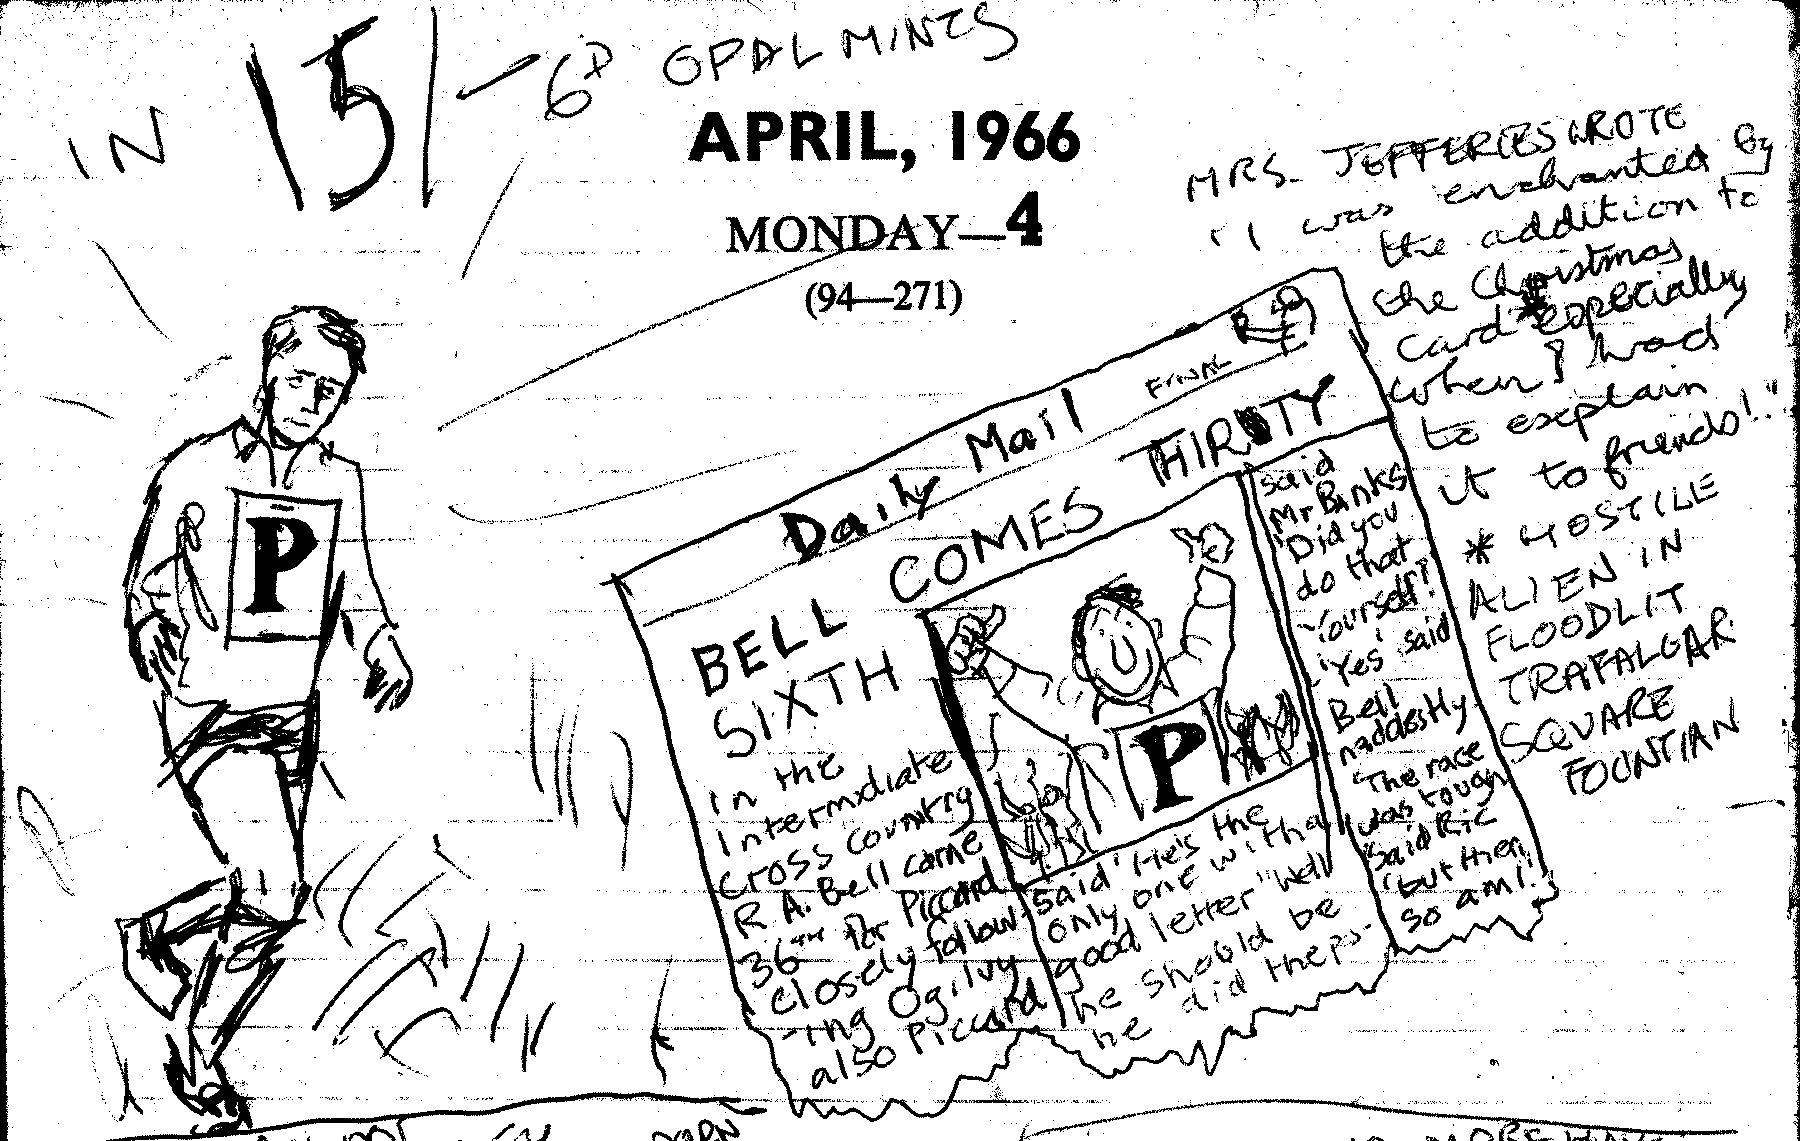 IN 15/-6D OPAL MINTS
APRIL, 1966
MONDAY—4
(94—271)
MRS. JEFFERIES WROTE
"I was enchanted by
the addition to
the Christmas
card * especially
when I had
to explain
it to friends!."
* HOSTILE
ALIEN IN
FLOODLIT
TRAFALGAR
SQUARE
FOUNTIAN
P
Daily Mail FINAL
COMES THIRTY
BELL
SIXTH
in the
Intermediate
cross country
R A. Bell came
36TH for Piccard
closely follow-
-ing Ogilvy
also Piccard
P
said 'He's the
only one with a
good letter' Well
he should be
he did the
said
Mr Banks
'Did you
do that
Yourself?'
'Yes' said
Bell
The race
was tough
said Ric
'but then
so am I!'